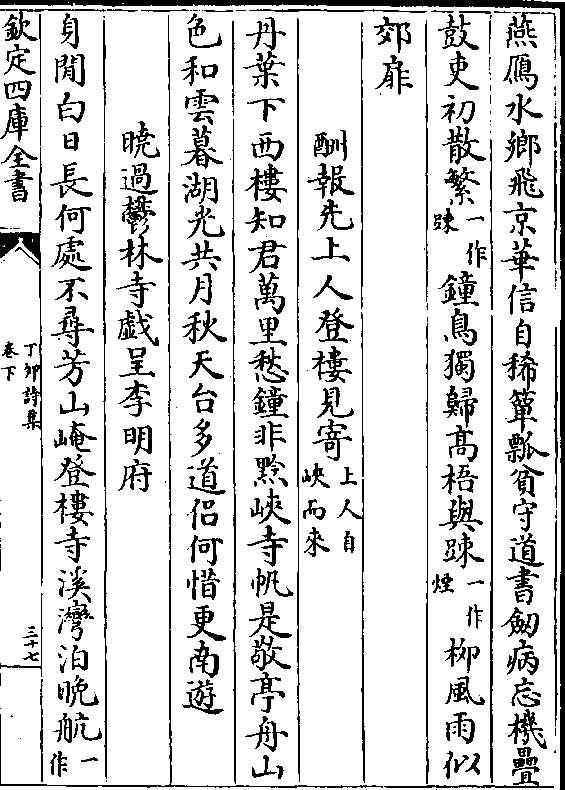 燕鴈水鄉飛京華信自稀簞瓢貧守道書劒病忘機疊
鼓吏初散繁一作踈鐘鳥獨歸高梧與踈一作煙栁風雨似
郊扉
酬報先上人登樓見寄上人自峽而來
丹葉下西樓知君萬里愁鐘非黔峽寺帆是敬亭舟山
色和雲暮湖光共月秋天台多道侶何惜更南遊
曉過鬱林寺戯呈李明府
身閒白日長何處不尋芳山崦登樓寺溪灣泊晚航一作
欽定四庫全書
丁夘詩集
卷下
三十七